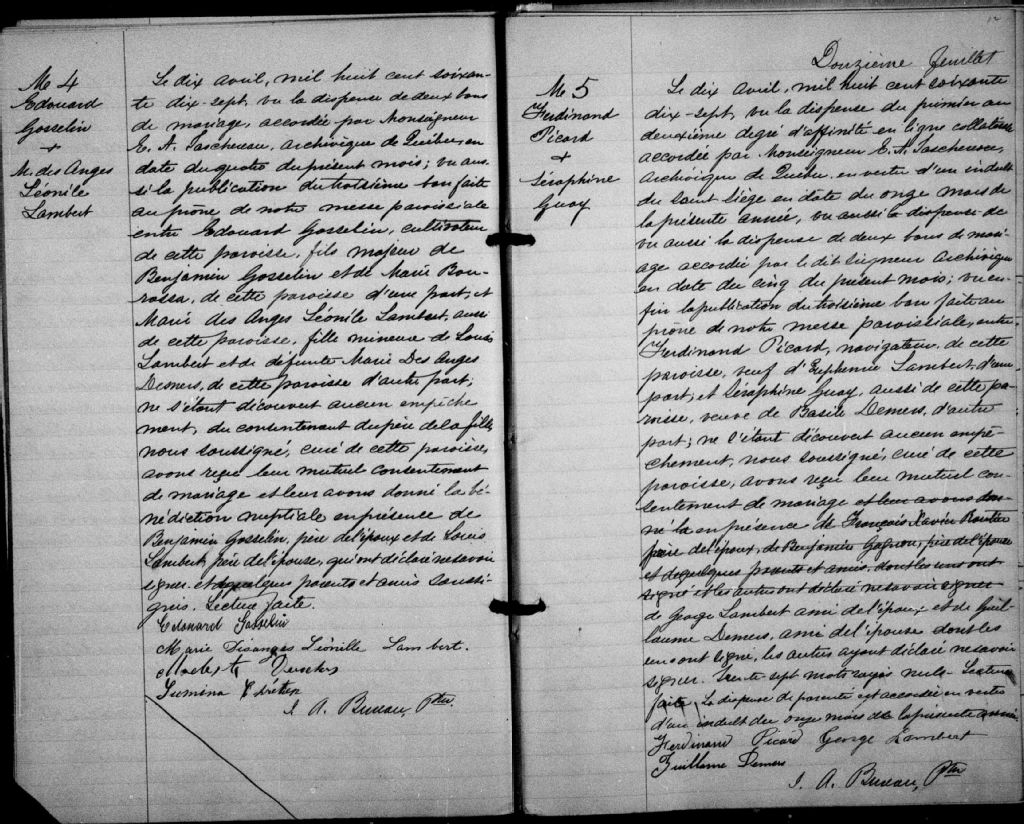 M 4
Edouard
Gosselin
+
M. des Anges
Léonile
Lambert
Le dix avril, mil huit cent soixan-
te dix-sept, vu la dispense de deux bans
de mariage, accordée par Monseigneur
E. A. Taschereau, archevêque de Québec, en
date du quatre du présent mois; vu aus-
si la publication du troisième ban faite
au prône de notre messe paroissiale
entre Edouard Gosselin, cultivateur
de cette paroisse, fils majeur de
Benjamin Gosselin et de Marie Bou-
rassa, de cette paroisse d'une part, et
Marie des Anges Léonile Lambert, aussi
de cette paroisse, fille mineure de Louis
Lambert et de défunte Marie Des Anges
Demers, de cette paroisse d'autre part;
ne s'étant découvert aucun empêche
ment, du consentement du père de la fille
nous soussigné, curé de cette paroisse,
avons reçu leur mutuel consentement
de mariage et leur avons donné la bé-
nédiction nuptiale en présence de
Benjamin Gosselin, père de l'époux et de Louis
Lambert, père de l'épouse, qui ont déclaré ne savoir
signer et de quelques parents et amis soussi-
gnés. Lecture faite.
Edouard Gosselin
Marie Disanges Léonille Lambert.
J. A. Bureau, Ptre.
12
Douzième feuillet
M 5
Ferdinand
Picard
+
Séraphine
Guay
Le dix avril, mil huit cent soixante
dix-sept, vu la dispense du premier au
deuxième degré d'affinité en ligne collatérale
accordée par Monseigneur E. A. Taschereau,
Archevêque de Québec en vertu d'un indult
du Saint-Siège en date du onze mars de
la présente année, vu aussi la dispense de
vu aussi la dispense de deux bans de mari-
age accordée par le dit Seigneur Archevêque
en date du cinq du présent mois; vu en-
fin la publication du troisième ban faite au
prône de notre messe paroissiale, entre
Ferdinand Picard, navigateur, de cette
paroisse, veuf d'Euphémie Lambert, d'une
part, et Séraphine Guay, aussi de cette pa-
roisse, veuve de Basile Demers, d'autre
part; ne s'étant découvert aucun empê-
chement, nous soussigné, curé de cette
paroisse, avons reçu leur mutuel con-
sentement de mariage et leur avons don-
né la en présence de François Xavier
père de l'époux, de Benjamin Gagnon, père de l'épouse
et de quelques parents et amis dont les uns ont
signé et les autres ont déclaré ne savoir signer
de George Lambert ami de l'époux et de Guil-
laume Demers, ami de l'épouse dont les
uns ont signé, les autres ayant déclaré ne savoir
signer. Trente sept mots rayés nuls. Lecture
faite. La dispense de parenté est accordée en vertu
d'un indult du onze mars de la présente année
Ferdinand Picard George Lambert
Guillaume Demers
J. A. Bureau, Ptre